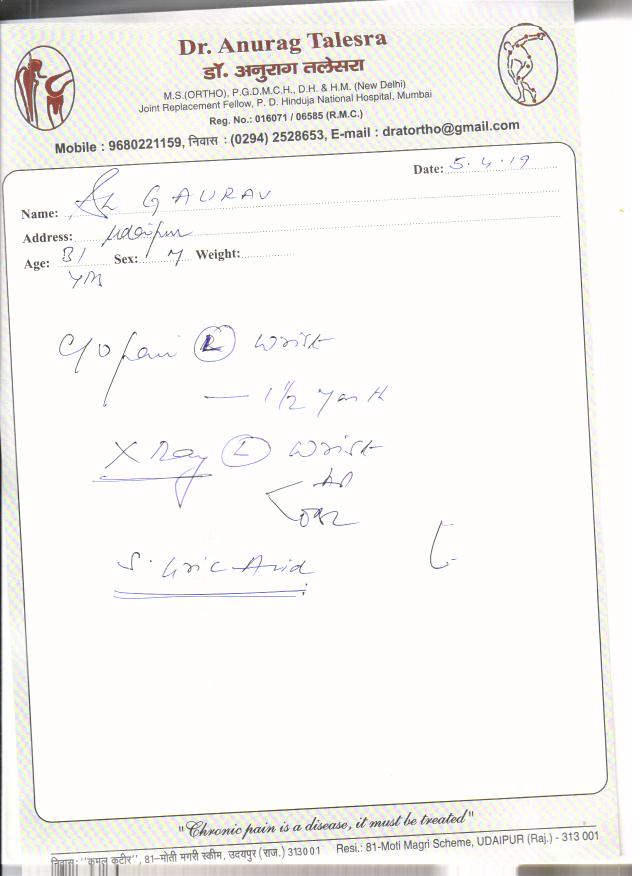 Dr. Anurag Talesra
डॉ. अनुराग तलेसरा
M.S.(ORTHO), P.G.D.M.C.H., D.H. & H.M. (New Delhi)
Joint Replacement Fellow, P. D. Hinduja National Hospital, Mumbai
Reg. No.: 016071 / 06585 (R.M.C.)
Mobile : 9680221159, निवास : (0294) 2528653, E-mail : dratortho@gmail.com
Date: 5.4.19
Name: GAURAV
Address: Udaipur
Age: 31 Sex: M Weight:
C/o pain L wrist
1 1/2 month
X Ray L wrist
AP
S. Uric Acid
"Chronic pain is a disease, it must be treated"
निवास: "कमल कुटीर", 81-मोती मगरी स्कीम, उदयपुर (राज.) 313001 Resi.: 81-Moti Magri Scheme, UDAIPUR (Raj.) - 313 001